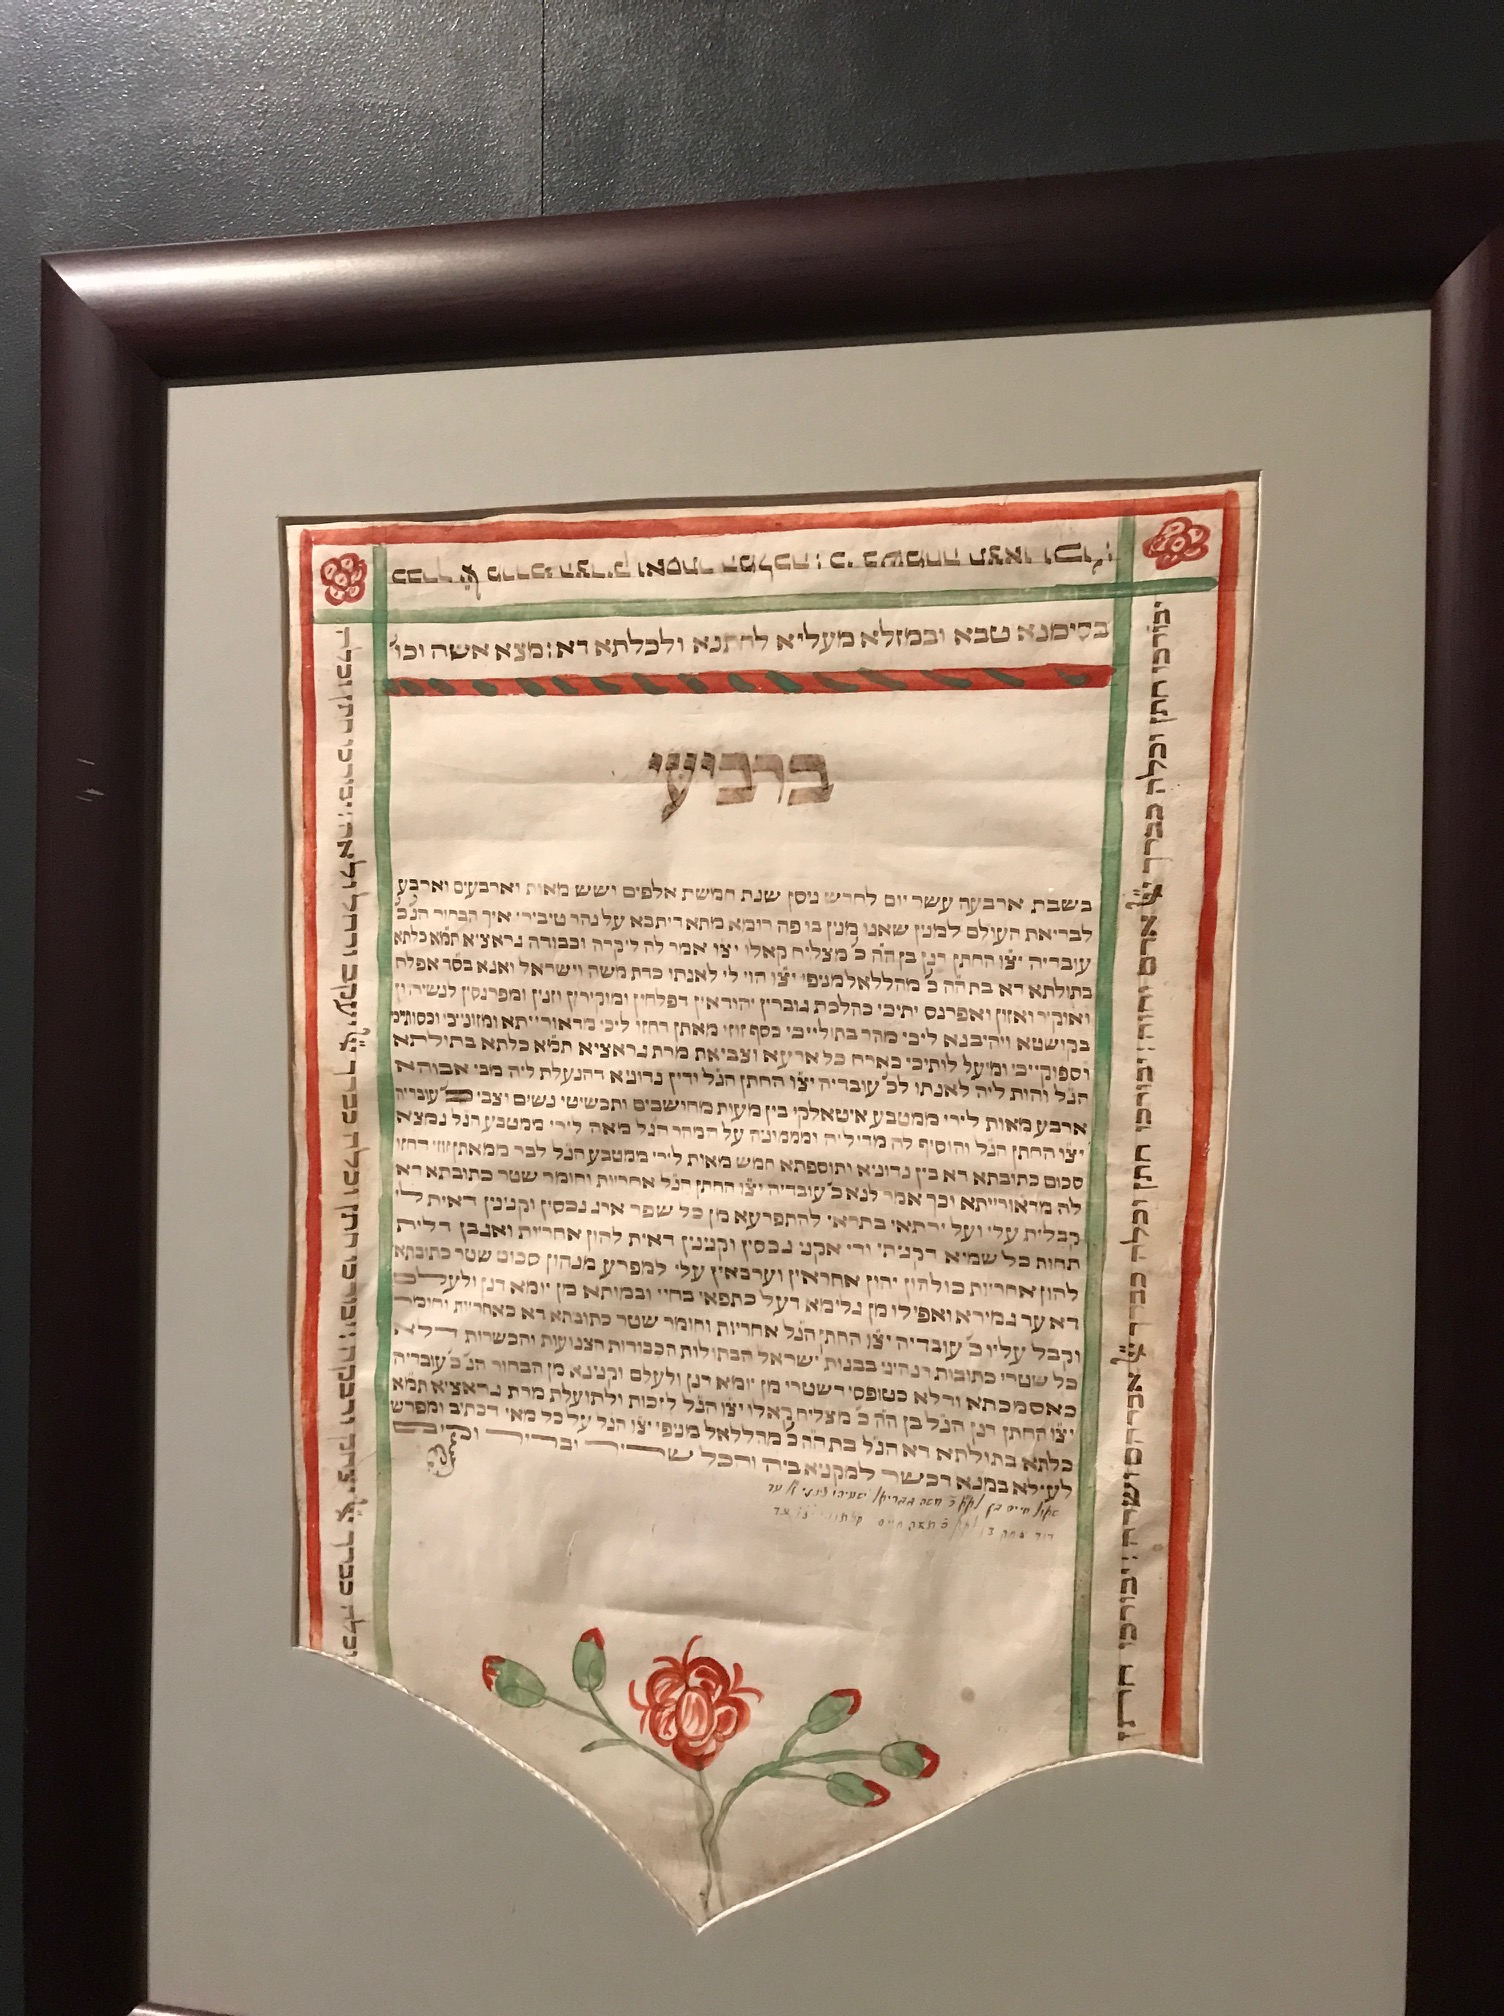 כברך ש״י מרדכי הצדיק ואסתר המלכה : כי בשמחה תצאו וכו׳ :
בסימנא טבא ובמזלא מעליא לחתנא ולכלתא דא : מצא אשה וכו׳
ברביעי
בשבת ארבעה עשר יום לחדש ניסן שנת חמשת אלפים ושש מאות וארבעים וארבע
לבריאת העולם למנין שאנו מנין בו פה רומא מתא דיתבא על נהר טיבירי איך הבחור הנ״כ
עובדיה יצ״ו החתן דנן בן הה״כ מצליח קאלו יצ״ו אמר לה ליקרה וכבודה גראציא תמ״א כלתא
בתולתא דא בת הה״כ מהללאל מניפי יצ״ו הוי לי לאנתו כדת משה וישראל ואנא בס״ד אפלח
ואוקיר ואזון ואפרנס יתיכי כהלכת גוברין יהודאין דפלחין ומוקירין וזנין ומפרנסין לנשיהון
בקושטא ויהיבנא ליכי מהר בתולייכי כסף זוזי מאתן דחזו ליכי מדאורייתא ומזונייכי וכסותיכי
וספוקייכי ומיעל לותיכי כארח כל ארעא וצביאת מרת גראציא תמ״א כלתא בתולתא
הנ״ל והות ליה לאנתו לכ׳ עובדיה יצ״ו החתן הנ״ל ודין נדוניא דהנעלת ליה מבי אבוהא
ארבע מאות לירי ממטבע איטאלקי בין מעות מחושבים ותכשיטי נשים וצבי כ׳ עובדיה
יצ״ו החתן הנ״ל והוסיף לה מדיליה ומממוניה על המהר הנ״ל מאה לירי ממטבע הנ״ל נמצא
סכום כתובתא דא בין נדוניא ותוספתא חמש מאות לירי ממטבע הנ״ל לבר ממאתן זוזי דחזו
לה מדאורייתא וכך אמר לנא כ׳ עובדיה יצ״ו החתן הנ״ל אחריות וחומר שטר כתובתא דא
קבלית עלי ועל ירתאי בתראי להתפרעא מן כל שפר ארג נכסין וקנינין דאית לי
תחות כל שמיא דקניתי ודי אקני נכסין וקנינין דאית להון אחריות ואגבן דלית
להון אחריות כולהון יהון אחראין וערבאין עלי למפרע מנהון סכום שטר כתובתא
דא עד גמירא ואפילו מן גלימא דעל כתפאי בחיי ובמותא מן יומא דנן ולעלם
וקבל עליו כ׳ עובדיה יצ״ו החתן הנ״ל אחריות וחומר שטר כתובתא דא כאחריות וחומר
כל שטרי כתובות דנהיגי בבנות ישראל הבתולות הכבודות הצנועות והכשרות דלא
כאסמכתא ודלא כטופסי דשטרי מן יומא דנן ולעלם וקנינא מן הבחור הנ״כ עובדיה
יצ״ו החתן דנן הנ״ל בן הה״כ מצליח קאלו יצ״ו הנ״ל לזכות ולתועלת מרת גראציא תמ״א
כלתא בתולתא דא הנ״ל בת הה״כ מהללאל מניפי יצ״ו הנ״ל על כל מאי דכתיב ומפרש
לעילא במנא דכשר למקניא ביה והכל שריר ובריר וקיים
חיים בן עד
דוד חיים עד
יבורכו חתן וכלה כברך ש״י אדם וחוה : יבורכו חתן וכלה כברך ש״י אברהם ושרה : יבורכו חתן
וכלה כברך ש״י יצחק ורבקה : יבורכו חתן וכלה כברך ש״י יעקב ורחל ולאה : יבורכו חתן וכלה